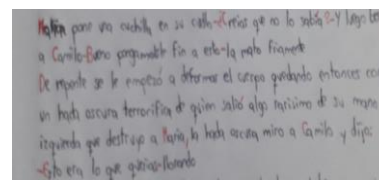 Malia pone una cuchilla en su cuello-Creías que no lo sabía?-Y luego
a Camilo-Bueno pongamosle fin a esto-la mato friamente
De repente se le empezó a deformar el cuerpo quedando entonces
un hada oscura terrorifica de quien salió algo rarisimo de su mano
izquierda que destruyo a Maria, la hada oscura miro a Camilo y dijo:
-Esto era lo que querias-llorando